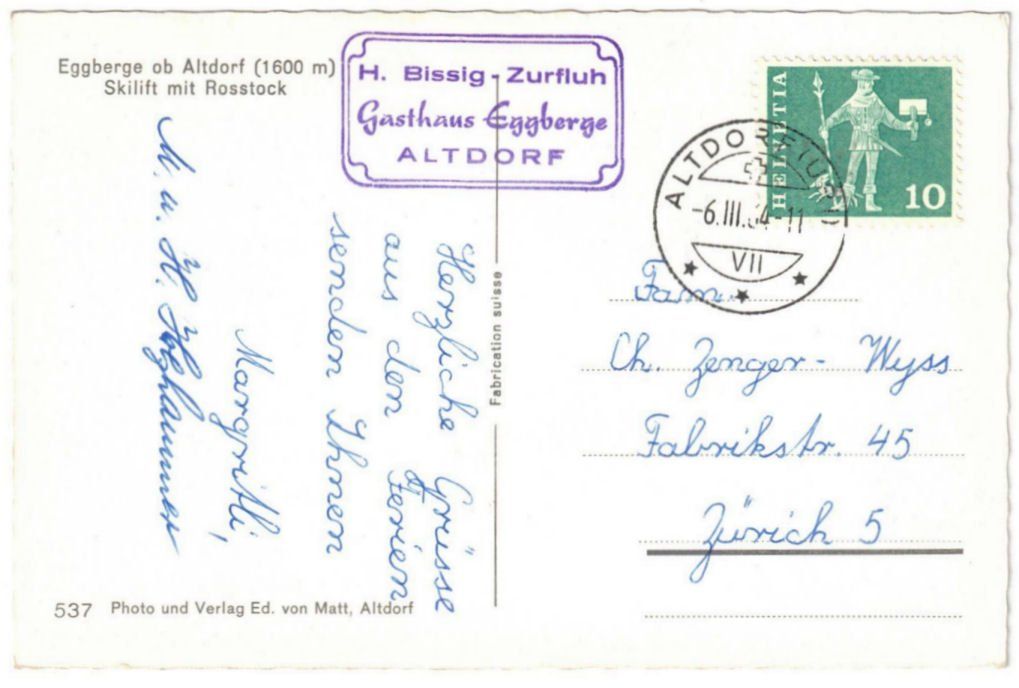 Eggberge ob Altdorf (1600 m)
Skilift mit Rosstock
H. Bissig-Zurfluh
Gasthaus Eggberge
ALTDORF
HELVETIA
10
ALTDORF (URI)
-6.III.64-11
VII
Herzliche Grüsse
aus den Ferien
senden Ihnen
Margritli,
M. u. H.
Fabrication suisse
Fam.
Ch. Zenger-Wyss
Fabrikstr. 45
Zürich 5
537 Photo und Verlag Ed. von Matt, Altdorf